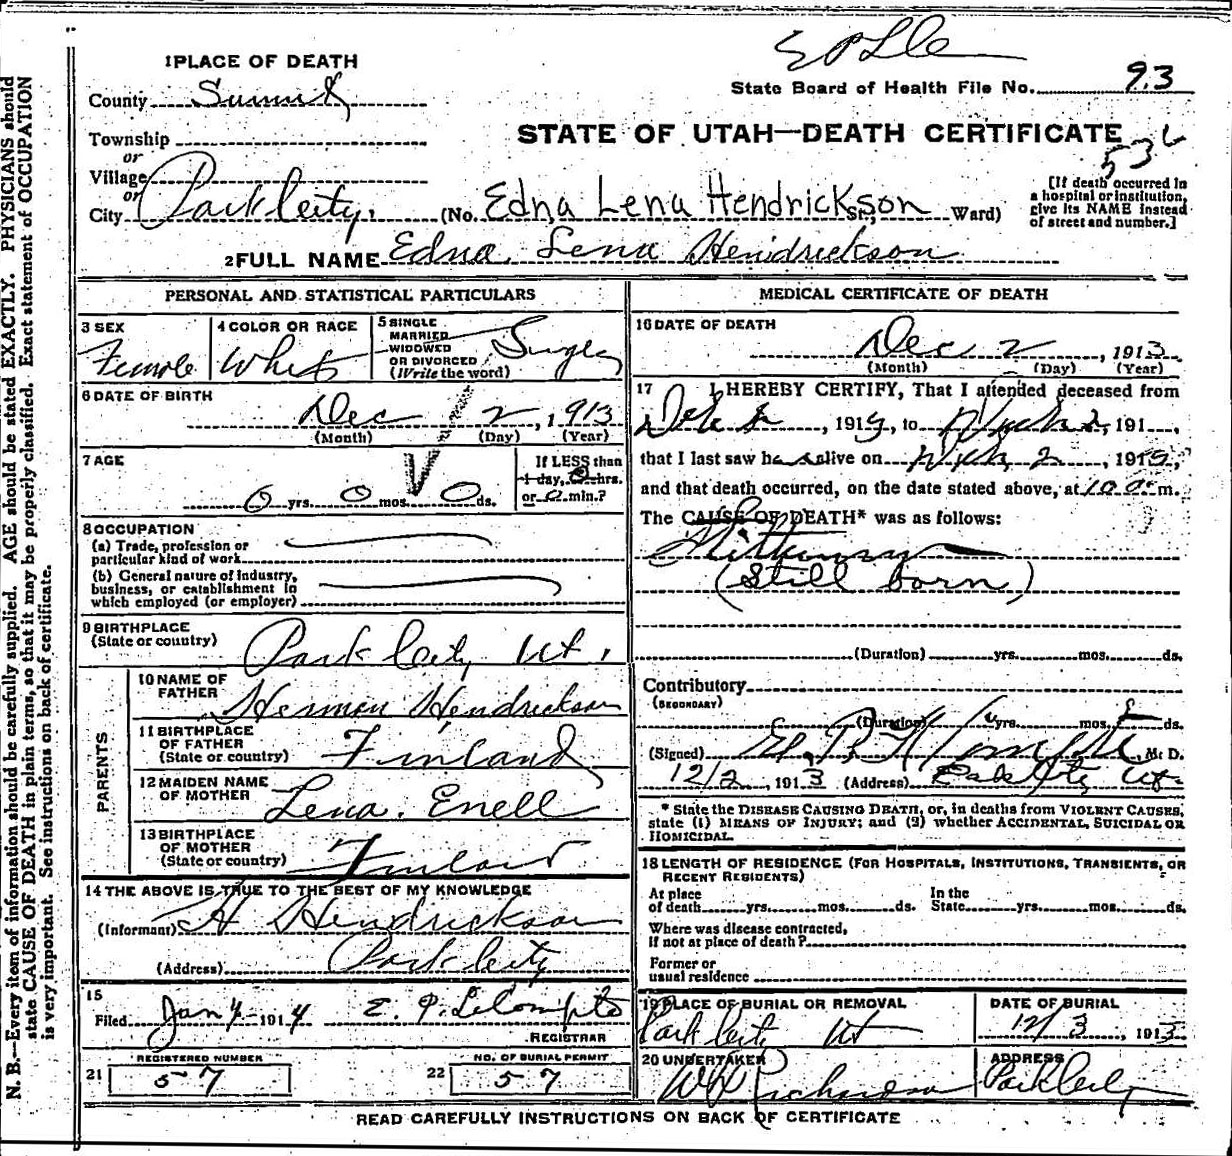 1 PLACE OF DEATH
County Summit
State Board of Health File No. 93
Township
STATE OF UTAH—DEATH CERTIFICATE
or
Village
or
City Park City, (No. Edna Lena Hendrickson St., Ward)
[If death occurred in
a hospital or institution,
give its NAME instead
of street and number.]
2 FULL NAME Edna Lena Hendrickson
PERSONAL AND STATISTICAL PARTICULARS
3 SEX
Female
4 COLOR OR RACE
White
5 SINGLE
MARRIED
WIDOWED
OR DIVORCED
(Write the word)
Single
6 DATE OF BIRTH
Dec 2, 1913
(Month) (Day) (Year)
7 AGE
0 yrs. 0 mos. 0 ds.
If LESS than
1 day, 0 hrs.
or 0 min.?
8 OCCUPATION
(a) Trade, profession or
particular kind of work
(b) General nature of industry,
business, or establishment in
which employed (or employer)
9 BIRTHPLACE
(State or country)
Park City Ut.
PARENTS
10 NAME OF
FATHER
Herman Hendrickson
11 BIRTHPLACE
OF FATHER
(State or country)
Finland
12 MAIDEN NAME
OF MOTHER
Lena Enell
13 BIRTHPLACE
OF MOTHER
(State or country)
Finland
14 THE ABOVE IS TRUE TO THE BEST OF MY KNOWLEDGE
(Informant) H Hendrickson
(Address) Park City
15
Filed Jan 4 1914 E. P. LeCompte
REGISTRAR
REGISTERED NUMBER
21 57
NO. OF BURIAL PERMIT
22 57
MEDICAL CERTIFICATE OF DEATH
16 DATE OF DEATH
Dec 2, 1913
(Month) (Day) (Year)
17 I HEREBY CERTIFY, That I attended deceased from
, 191, to 2, 191,
that I last saw h alive on 2, 191,
and that death occurred, on the date stated above, at 10 m.
The CAUSE OF DEATH* was as follows:
(Still born)
(Duration) yrs. mos. ds.
Contributory
(SECONDARY)
(Duration) yrs. mos. ds.
(Signed) M. D.
12/2, 1913 (Address) Park City Ut
* State the DISEASE CAUSING DEATH, or, in deaths from VIOLENT CAUSES,
state (1) MEANS OF INJURY; and (2) whether ACCIDENTAL, SUICIDAL OR
HOMICIDAL.
18 LENGTH OF RESIDENCE (FOR HOSPITALS, INSTITUTIONS, TRANSIENTS, OR
RECENT RESIDENTS)
At place
of death yrs. mos. ds.
In the
State yrs. mos. ds.
Where was disease contracted,
if not at place of death?
Former or
usual residence
19 PLACE OF BURIAL OR REMOVAL
Park City Ut
DATE OF BURIAL
12/3, 1913
20 UNDERTAKER
W Richardson
ADDRESS
Park City
READ CAREFULLY INSTRUCTIONS ON BACK OF CERTIFICATE
N. B.—Every item of information should be carefully supplied. AGE should be stated EXACTLY. PHYSICIANS should
state CAUSE OF DEATH in plain terms, so that it may be properly classified. Exact statement of OCCUPATION
is very important. See instructions on back of certificate.